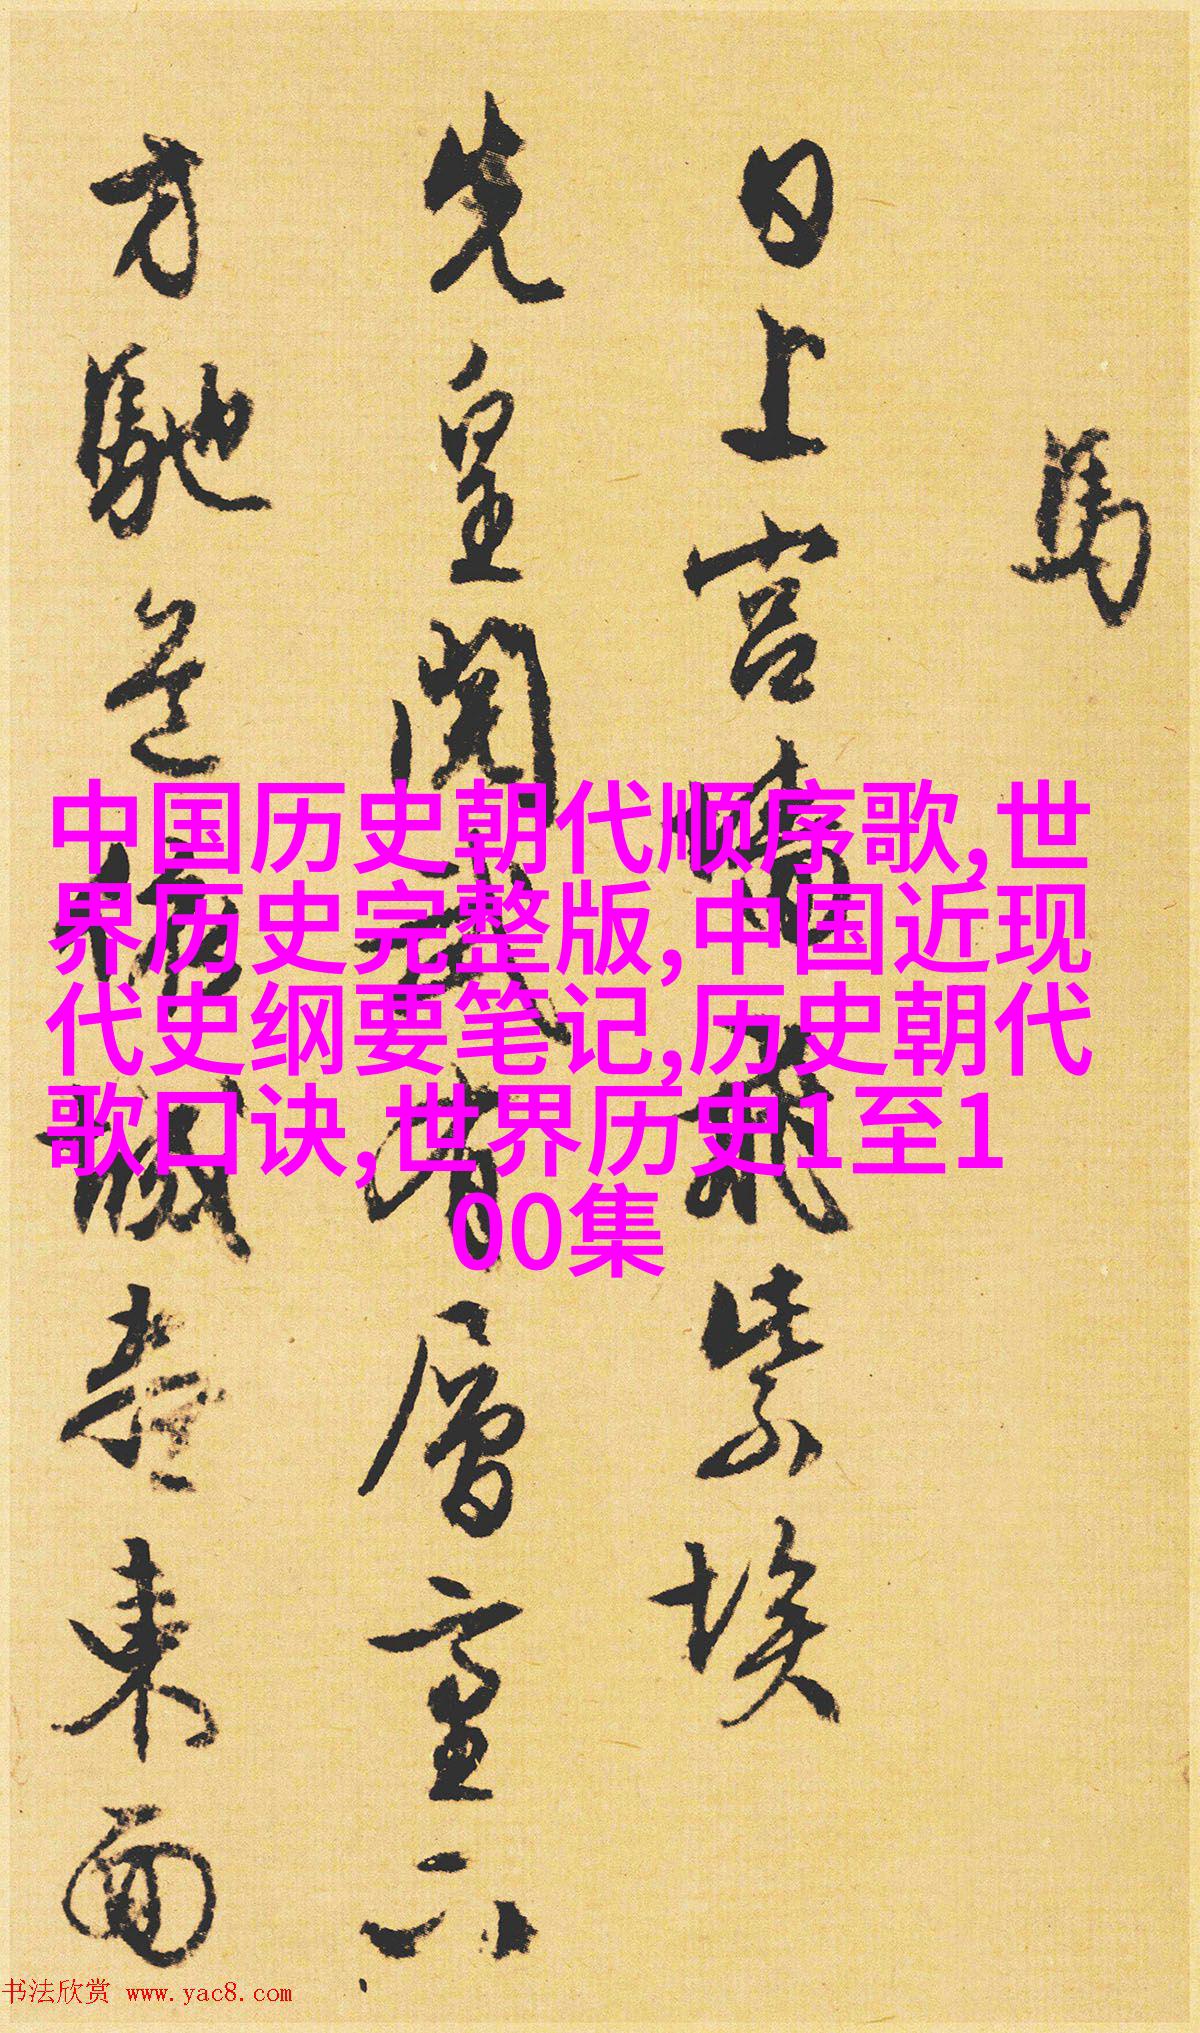 馬
日上宫晴飛紫埃
先皇閲武有層臺下
方馳道依城盡東面
中国历史朝代顺序歌,世
界历史完整版,中国近现
代史纲要笔记,历史朝代
歌口诀,世界历史1至1
00集
书法欣赏 www.yac8.com